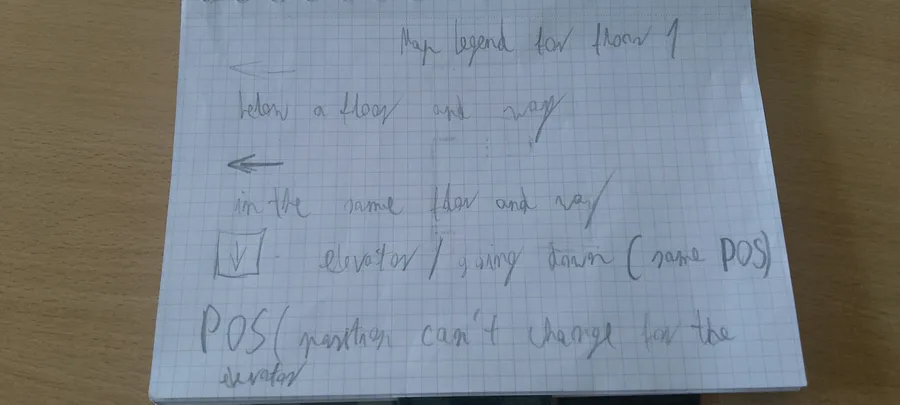 Map legend for floor 1
below a floor and way
in the same floor and way
elevator / going down (same POS)
POS (position can't change for the
elevator